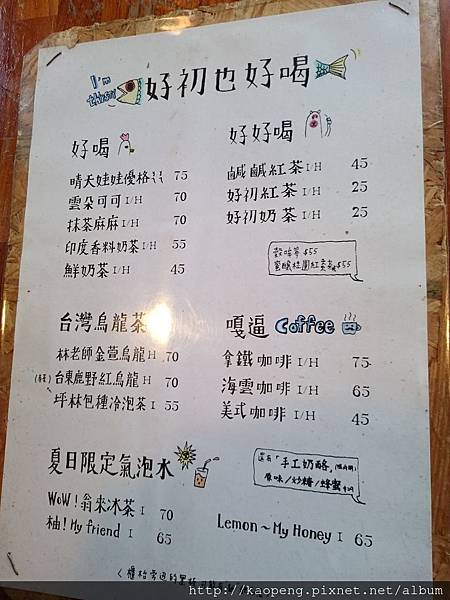 I'm thirsty
好初也好喝
好喝
晴天娃娃優格 75
雲朵可可 I/H 70
抹茶麻麻 I/H 70
印度香料奶茶 I/H 55
鮮奶茶 I/H 45
好好喝
鹹鹹紅茶 I/H 45
好初紅茶 I/H 25
好初奶茶 I/H 25
$55
蜜釀桂圓紅棗茶 $55
台灣烏龍茶
林老師金萱烏龍 H 70
台東鹿野紅烏龍 H 70
坪林包種冷泡茶 I 55
嘎逼 Coffee
拿鐵咖啡 I/H 75
海雲咖啡 I/H 65
美式咖啡 I/H 45
夏日限定氣泡水
WoW!翁來冰茶 I 70
柚!My friend I 65
還有「手工奶酪」
原味/炒糖/蜂蜜
Lemon~My Honey I 65
http://kaopeng.pixnet.net/album